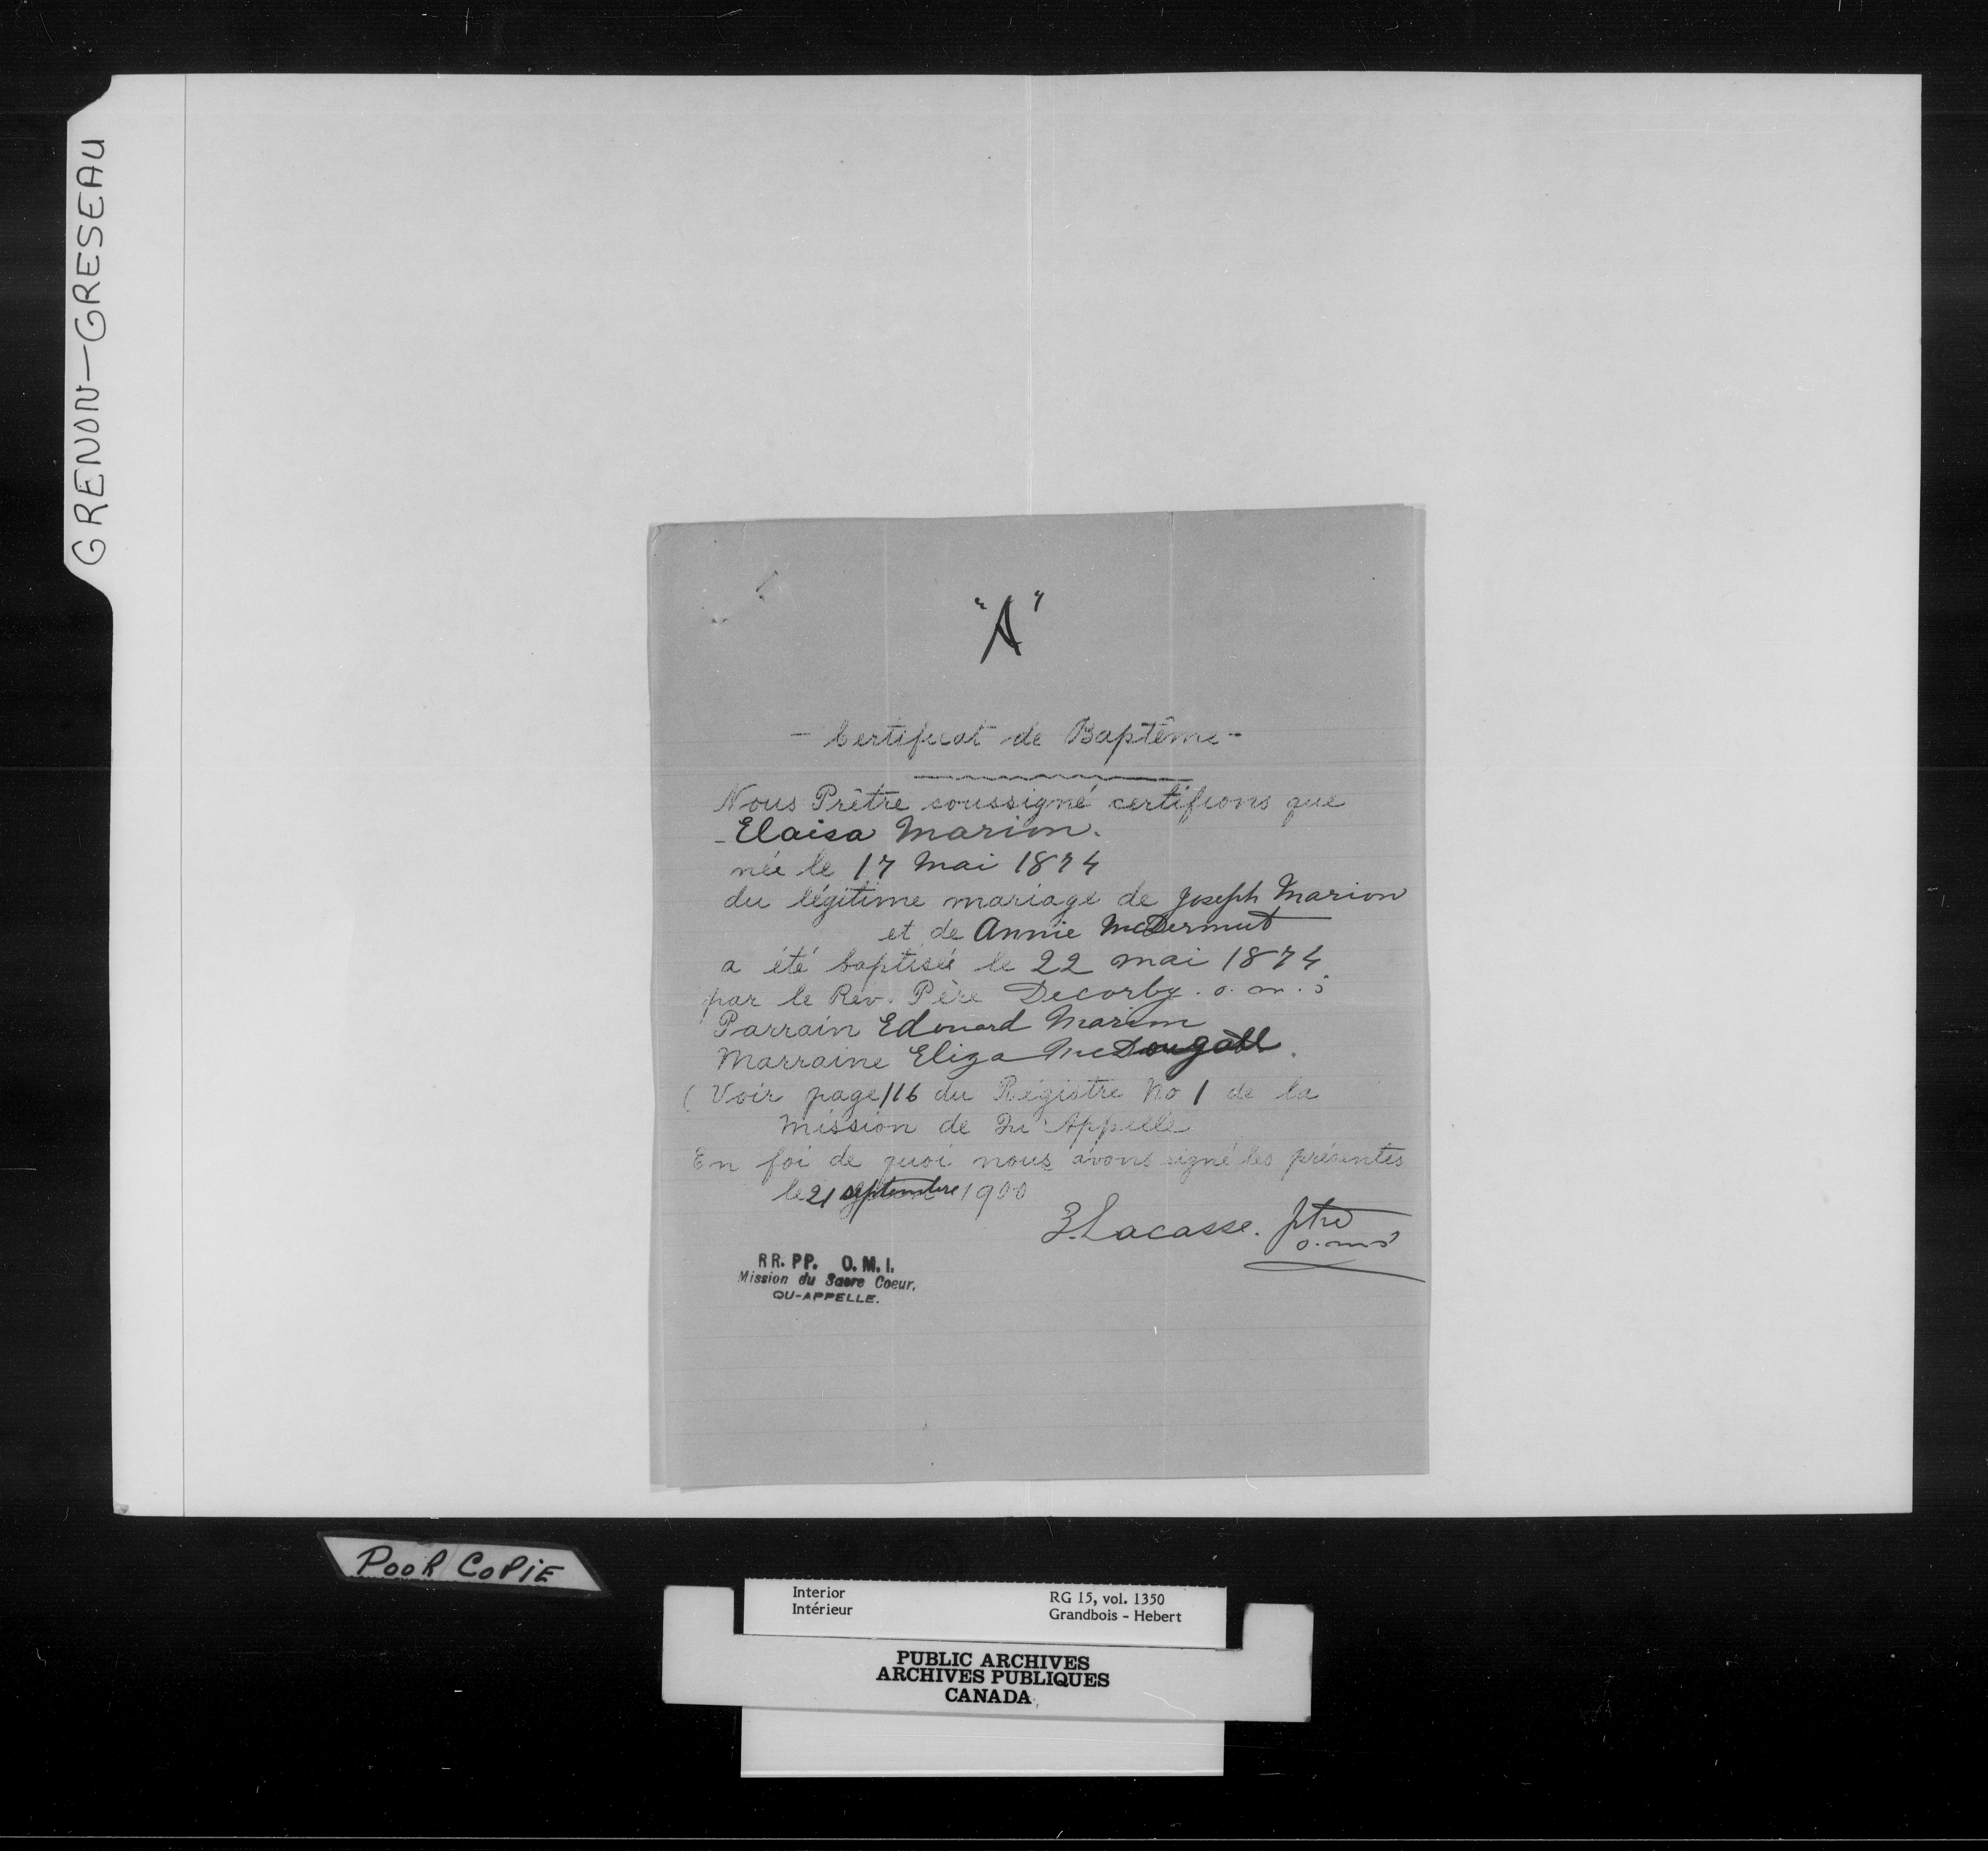 GRENON—GRESEAU
"A"
- Certificat de Baptême -
Nous Prêtre soussigné certifions que
- Elaisa Marion.
née le 17 Mai 1874
du légitime mariage de Joseph Marion
et de Annie McDermut
a été baptisée le 22 mai 1874
par le Rev. Père Decorby. o. m. i
Parrain Edouard Marion
Marraine Eliza McDougall.
(Voir page 116 du Régistre No 1 de la
Mission de Qu'Appelle
En foi de quoi nous avons signé les présentes
le 21 septembre 1900
Z. Lacasse. ptre
o.m.i
RR. PP. O. M. I.
Mission du Sacre Coeur,
QU-APPELLE.
POOR COPIE
Interior RG 15, vol. 1350
Intérieur Grandbois - Hebert
PUBLIC ARCHIVES
ARCHIVES PUBLIQUES
CANADA